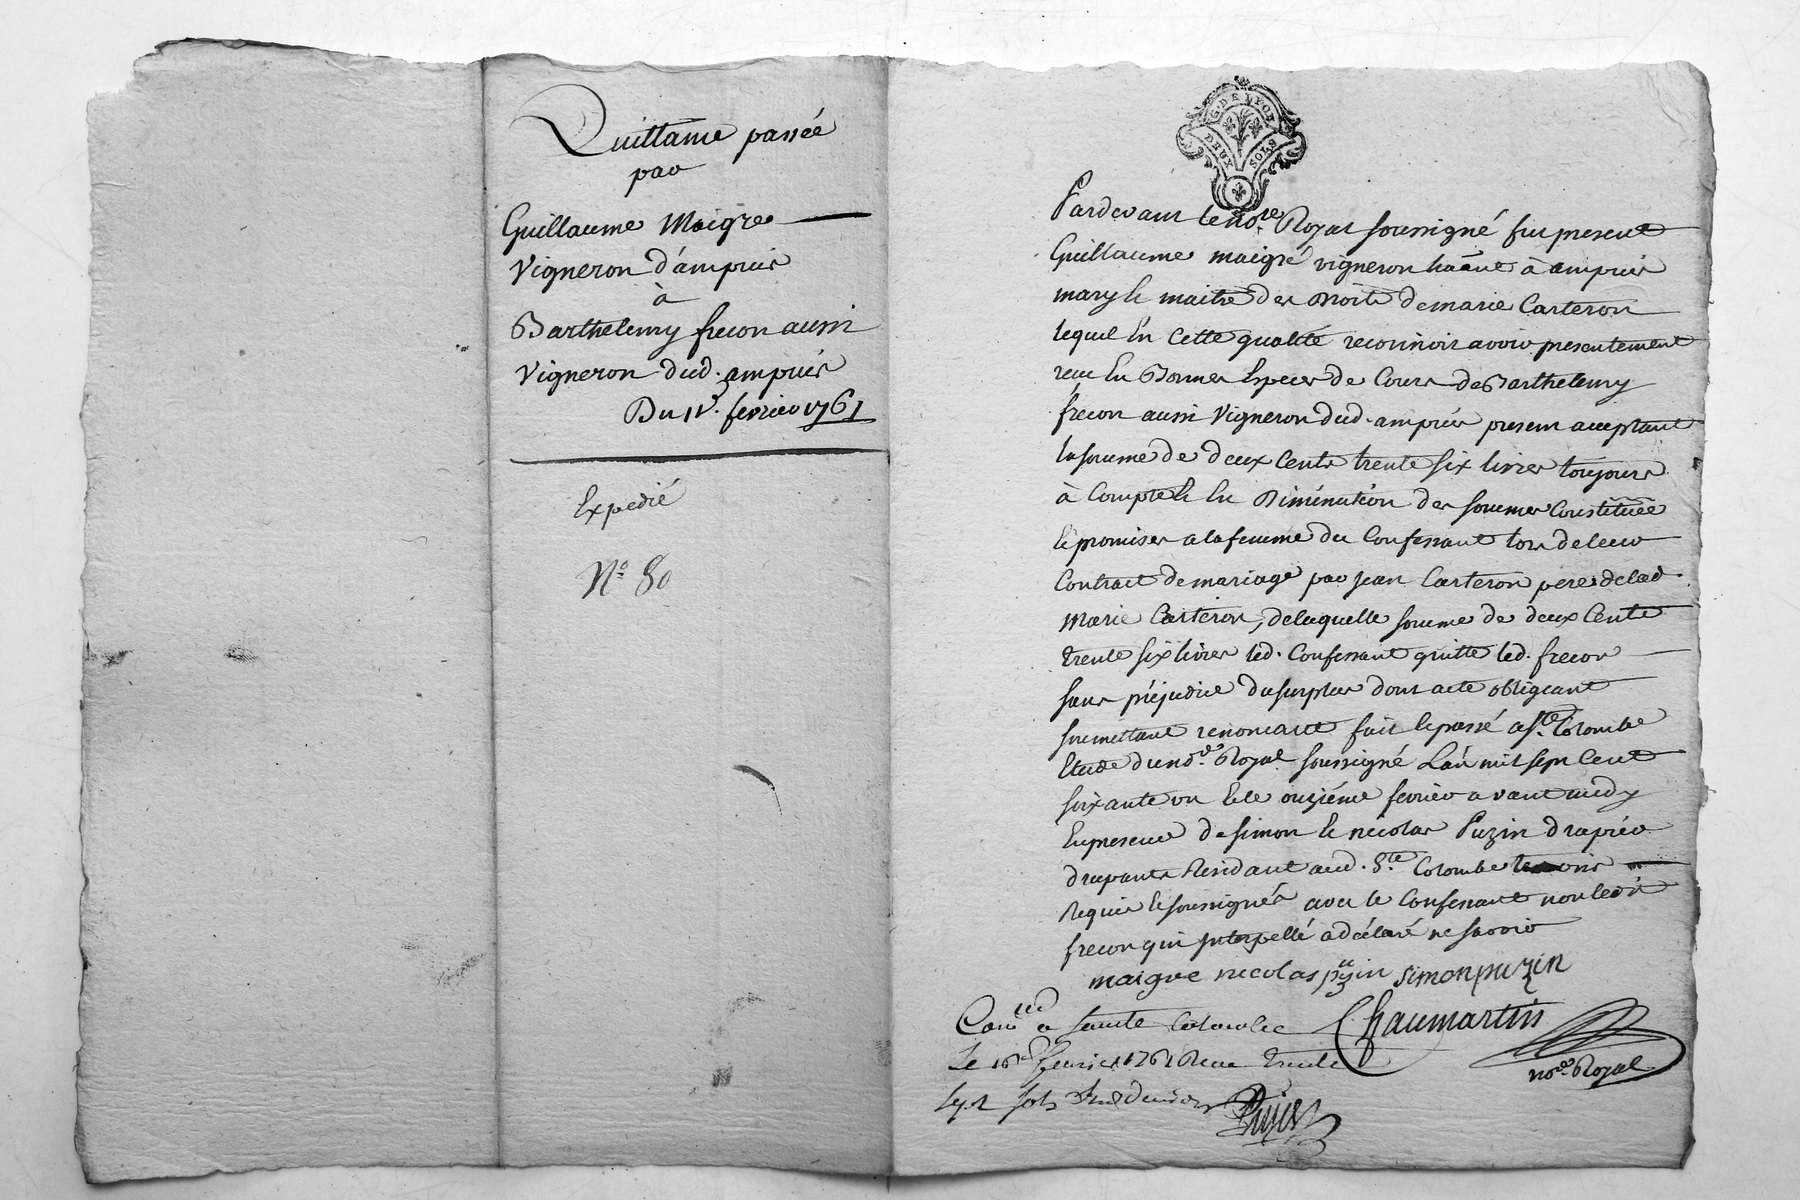 Quittance passée
par
Guillaume Maigre
Vigneron d'ampuis
à
Barthelemy frecon aussi
Vigneron dud. ampuis
Du 11e. fevrier 1761
Expedié
No. 80
G. DE LYON
DEUX SOLS
Pardevant le no.re Royal soussigné fut present
Guillaume maigre vigneron h̃ant à ampuis
mary & maitre des droits de marie Carteron
lequel En Cette qualité reconnoit avoir presentement
receu En Bonnes Especes de Cours de Barthelemy
frecon aussi Vigneron dud. ampuis present acceptant
la somme de deux Cents trente six livres toujours
à Compte & En Diminution des sommes Constituée
& promises a la femme du Confessant lors de leur
Contract de mariage par jean Carteron pere de lad.
Marie Carteron, de laquelle somme de deux Cents
trente six livres led. Confessant quitte led. frecon
sans préjudice du surplus dont acte obligeant
soumettant renoncant fait & passé a Ste. Colombe
Etude du no.re Royal soussigné L'an mil sept Cent
soixante un & le onziéme fevrier avant midy
En presence de simon & nicolas Puzin drapier
drapants Residant aud. Ste. Colombe
Requis & soussignés avec le Confessant non ledit
frecon qui Interpellé a déclaré ne savoir
maigre nicolas puzin simon puzin
Con.lé a sainte Colombe Chaumartin
Le 16e fevrier 1761 Reçu trente
no.re Royal
sept sols